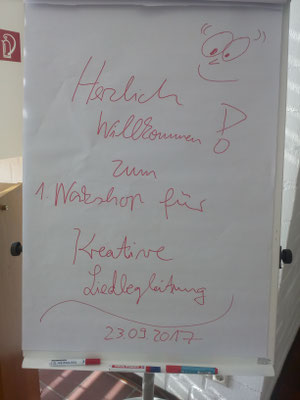 Herzlich
Willkommen!
zum
1. Workshop für
Kreative
Liedbegleitung
23.09.2017